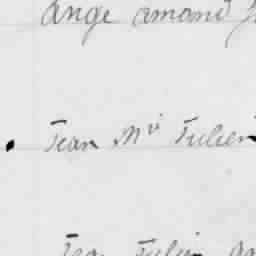 ange amand
Jean Mie Julien
Jean Julien